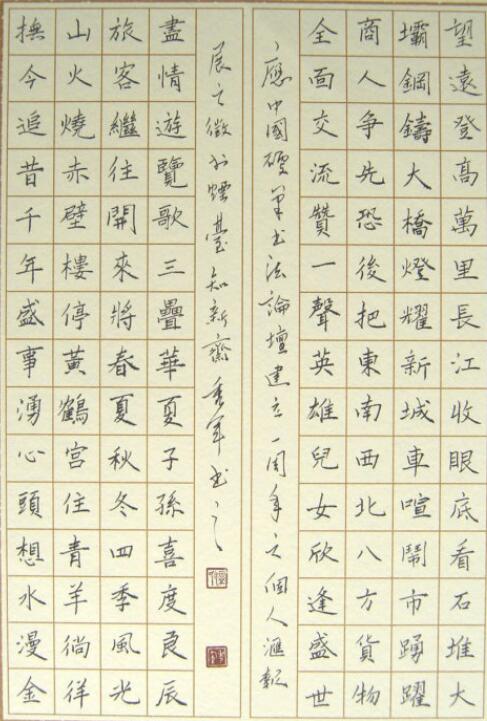 望遠登高萬里長江收眼底看石堆大
壩鋼鑄大橋燈耀新城車喧鬧市踴躍
商人爭先恐後把東南西北八方貨物
全面交流讚一聲英雄兒女欣逢盛世
撫今追昔千年盛事湧心頭想水漫金
山火燒赤壁樓停黃鶴宮住青羊徜徉
旅客繼往開來將春夏秋冬四季風光
盡情遊覽歌三疊華夏子孫喜度良辰
應中國硬筆書法論壇建立一周年之個人滙報
展之徵於煙臺知新齋秀軍書之